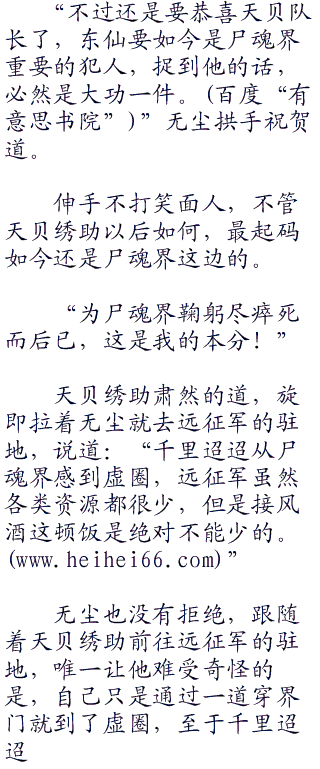 “不过还是要恭喜天贝队
长了，东仙要如今是尸魂界
重要的犯人，捉到他的话，
必然是大功一件。(百度“有
意思书院”)”无尘拱手祝贺
道。
伸手不打笑面人，不管
天贝绣助以后如何，最起码
如今还是尸魂界这边的。
“为尸魂界鞠躬尽瘁死
而后已，这是我的本分！”
天贝绣助肃然的道，旋
即拉着无尘就去远征军的驻
地，说道：“千里迢迢从尸
魂界感到虚圈，远征军虽然
各类资源都很少，但是接风
酒这顿饭是绝对不能少的。
(www.heihei66.com)”
无尘也没有拒绝，跟随
着天贝绣助前往远征军的驻
地，唯一让他难受奇怪的
是，自己只是通过一道穿界
门就到了虚圈，至于千里迢
迢